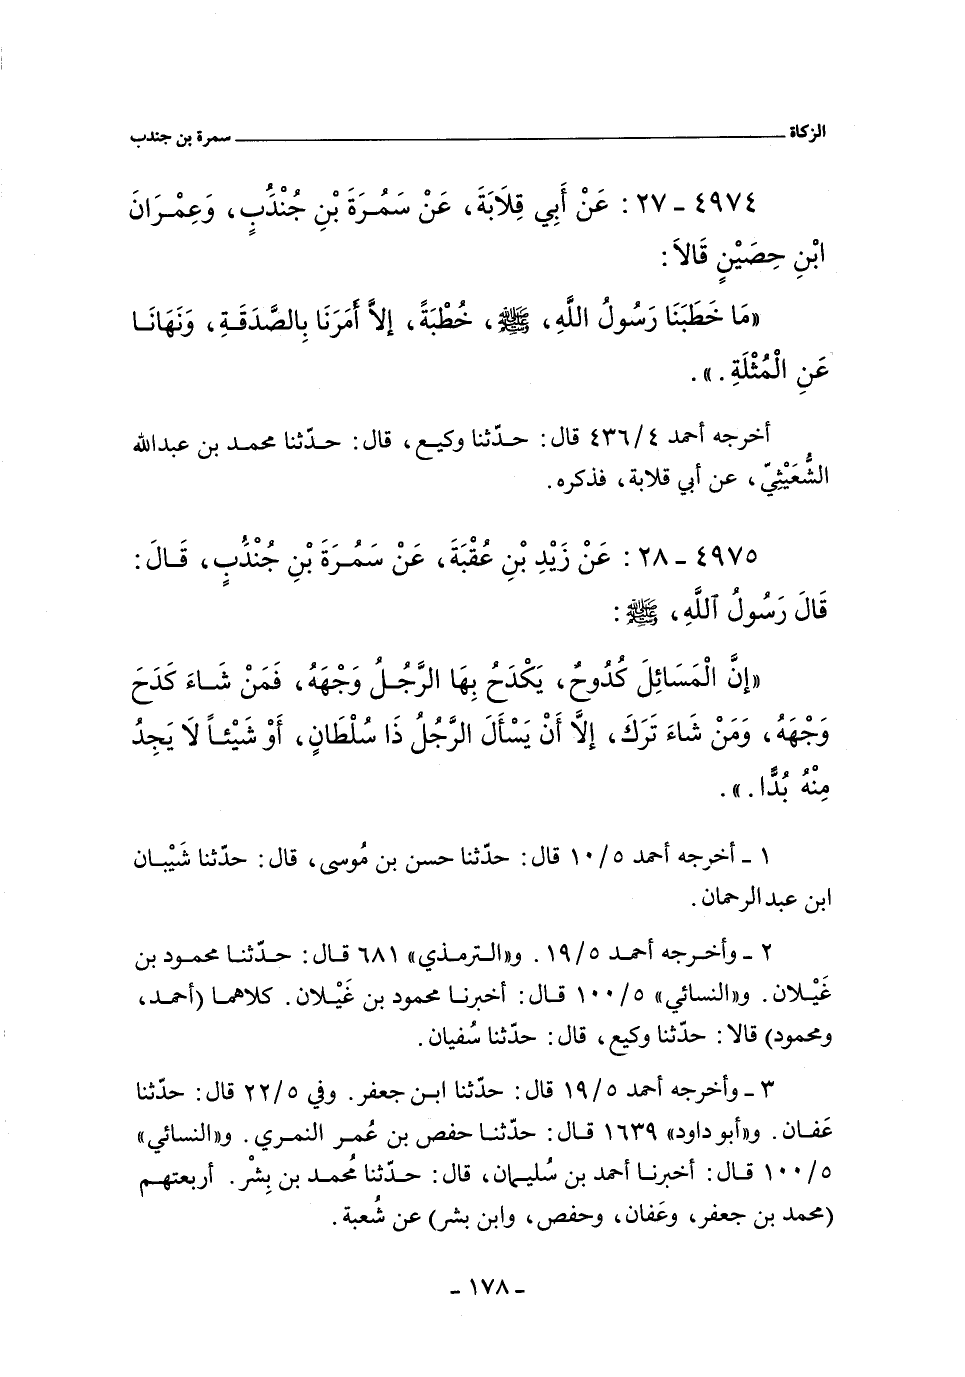 الزكاة ــــــــــ سمرة بن جندب
٤٩٧٤ - ٢٧ : عَنْ أَبِي قِلَابَةَ، عَنْ سَمُرَةَ بْنِ جُنْدُبٍ، وَعِمْرَانَ
ابْنِ حِصَيْنٍ قَالاَ:
«مَا خَطَبَنَا رَسُولُ اللَّهِ، ﷺ، خُطْبَةً، إلاَّ أَمَرَنَا بِالصَّدَقَةِ، وَنَهَانَا
عَنِ الْمُثْلَةِ.».
أخرجه أحمد ٤/ ٤٣٦ قال: حدّثنا وكيع، قال: حدّثنا محمد بن عبدالله
الشُّعَيْثِيّ، عن أبي قلابة، فذكره.
٤٩٧٥ - ٢٨ : عَنْ زَيْدِ بْنِ عُقْبَةَ، عَنْ سَمُرَةَ بْنِ جُنْدُبٍ، قَالَ:
قَالَ رَسُولُ اللَّهِ، ﷺ:
«إنَّ الْمَسَائِلَ كُدُوحٌ، يَكْدَحُ بِهَا الرَّجُلُ وَجْهَهُ، فَمَنْ شَاءَ كَدَحَ
وَجْهَهُ، وَمَنْ شَاءَ تَرَكَ، إلَّا أَنْ يَسْأَلَ الرَّجُلُ ذَا سُلْطَانٍ، أَوْ شَيْئاً لَا يَجِدُ
مِنْهُ بُدًّا.».
١ - أخرجه أحمد ٥/ ١٠ قال: حدّثنا حسن بن مُوسى، قال: حدّثنا شَيْبَان
ابن عبدالرحمان.
٢ - وأخرجه أحمد ٥/ ١٩. و«الترمذي» ٦٨١ قال: حدّثنا محمود بن
غَيْلان. و«النسائي» ٥/ ١٠٠ قال: أخبرنا محمود بن غَيْلان. كلاهما (أحمد،
ومحمود) قالا: حدّثنا وكيع، قال: حدّثنا سُفيان.
٣ - وأخرجه أحمد ٥/ ١٩ قال: حدّثنا ابن جعفر. وفي ٥/ ٢٢ قال: حدّثنا
عَفان. و«أبو داود» ١٦٣٩ قال: حدّثنا حفص بن عُمر النمري. و«النسائي»
٥/ ١٠٠ قال: أخبرنا أحمد بن سُليمان، قال: حدّثنا مُحمد بن بِشْر. أربعتهم
(محمد بن جعفر، وعَفان، وحفص، وابن بشر) عن شُعبة.
- ١٧٨ -